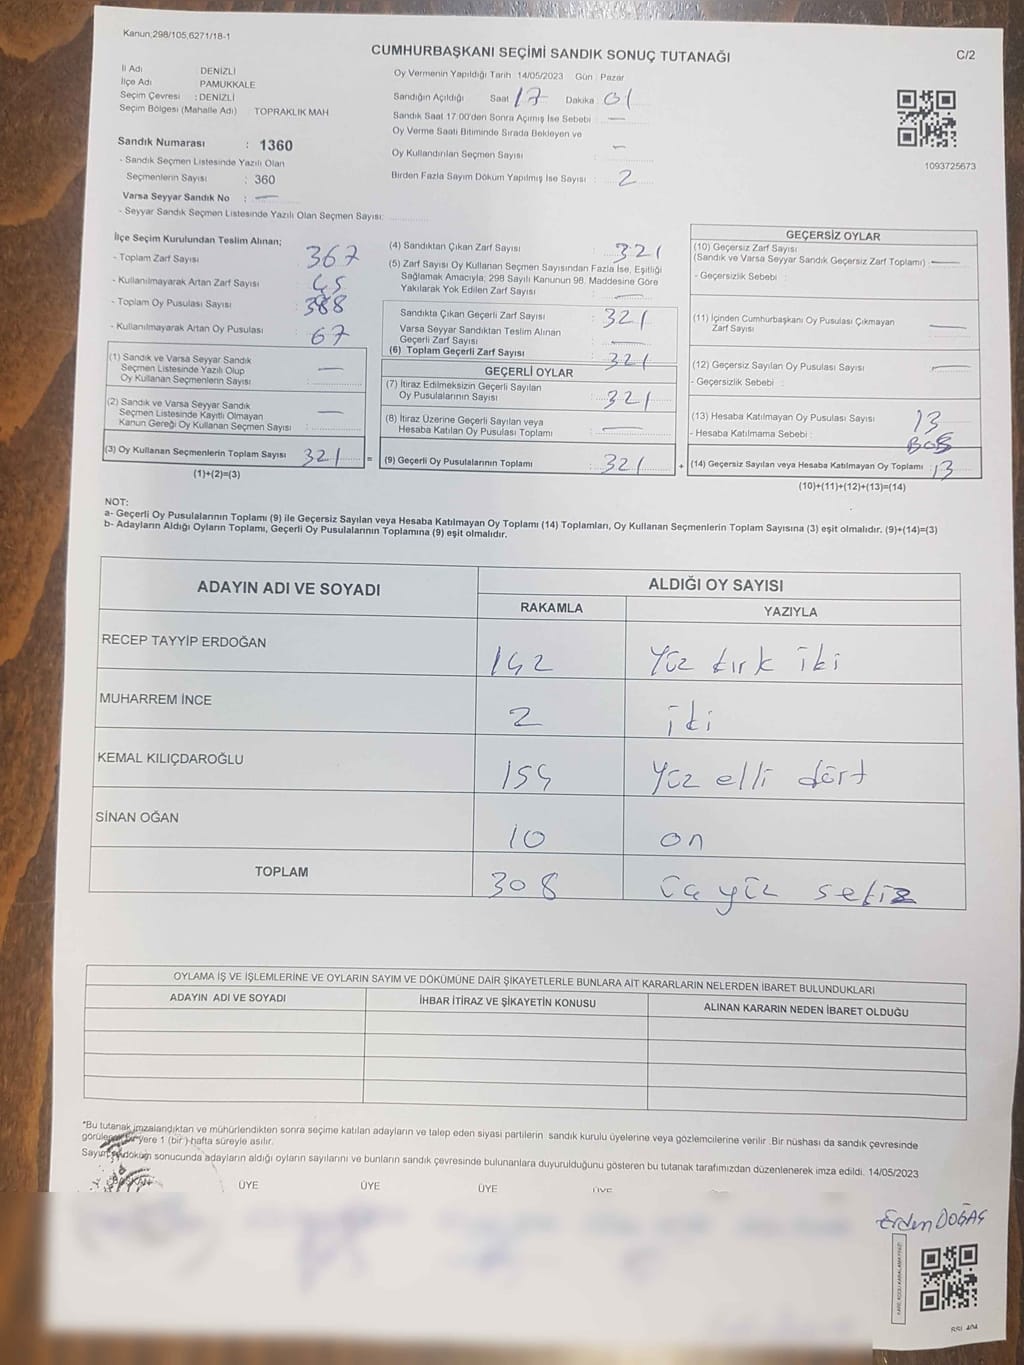 Kanun;298/105,6271/18-1
C/2
CUMHURBAŞKANI SEÇİMİ SANDIK SONUÇ TUTANAĞI
İl Adı DENİZLİ
İlçe Adı PAMUKKALE
Seçim Çevresi : DENİZLİ
Seçim Bölgesi (Mahalle Adı) TOPRAKLIK MAH
Sandık Numarası : 1360
- Sandık Seçmen Listesinde Yazılı Olan
Seçmenlerin Sayısı : 360
Varsa Seyyar Sandık No : —
- Seyyar Sandık Seçmen Listesinde Yazılı Olan Seçmen Sayısı:
Oy Vermenin Yapıldığı Tarih 14/05/2023 Gün : Pazar
Sandığın Açıldığı Saat 17 Dakika 01
Sandık Saat 17.00'den Sonra Açımış İse Sebebi : —
Oy Verme Saati Bitiminde Sırada Bekleyen ve
Oy Kullandırılan Seçmen Sayısı : —
Birden Fazla Sayım Döküm Yapılmış İse Sayısı : 2
1093725673
İlçe Seçim Kurulundan Teslim Alınan;
- Toplam Zarf Sayısı : 367
- Kullanılmayarak Artan Zarf Sayısı : 45
- Toplam Oy Pusulası Sayısı : 388
- Kullanılmayarak Artan Oy Pusulası : 67
(1) Sandık ve Varsa Seyyar Sandık
Seçmen Listesinde Yazılı Olup
Oy Kullanan Seçmenlerin Sayısı : —
(2) Sandık ve Varsa Seyyar Sandık
Seçmen Listesinde Kayıtlı Olmayan
Kanun Gereği Oy Kullanan Seçmen Sayısı : —
(3) Oy Kullanan Seçmenlerin Toplam Sayısı : 321 =
(1)+(2)=(3)
(4) Sandıktan Çıkan Zarf Sayısı : 321
(5) Zarf Sayısı Oy Kullanan Seçmen Sayısından Fazla İse, Eşitliği
Sağlamak Amacıyla; 298 Sayılı Kanunun 98. Maddesine Göre
Yakılarak Yok Edilen Zarf Sayısı : —
Sandıkta Çıkan Geçerli Zarf Sayısı : 321
Varsa Seyyar Sandıktan Teslim Alınan
Geçerli Zarf Sayısı : —
(6) Toplam Geçerli Zarf Sayısı : 321
GEÇERLİ OYLAR
(7) İtiraz Edilmeksizin Geçerli Sayılan
Oy Pusulalarının Sayısı : 321
(8) İtiraz Üzerine Geçerli Sayılan veya
Hesaba Katılan Oy Pusulası Toplamı : —
(9) Geçerli Oy Pusulalarının Toplamı : 321 +
GEÇERSİZ OYLAR
(10) Geçersiz Zarf Sayısı
(Sandık ve Varsa Seyyar Sandık Geçersiz Zarf Toplamı) : —
- Geçersizlik Sebebi :
(11) İçinden Cumhurbaşkanı Oy Pusulası Çıkmayan
Zarf Sayısı : —
(12) Geçersiz Sayılan Oy Pusulası Sayısı : —
- Geçersizlik Sebebi :
(13) Hesaba Katılmayan Oy Pusulası Sayısı : 13
- Hesaba Katılmama Sebebi : BOŞ
(14) Geçersiz Sayılan veya Hesaba Katılmayan Oy Toplamı : 13
(10)+(11)+(12)+(13)=(14)
NOT:
a- Geçerli Oy Pusulasının Toplamı (9) ile Geçersiz Sayılan veya Hesaba Katılmayan Oy Toplamı (14) Toplamları, Oy Kullanan Seçmenlerin Toplam Sayısına (3) eşit olmalıdır. (9)+(14)=(3)
b- Adayların Aldığı Oyların Toplamı, Geçerli Oy Pusulalarının Toplamına (9) eşit olmalıdır.
ADAYIN ADI VE SOYADI
ALDIĞI OY SAYISI
RAKAMLA YAZIYLA
RECEP TAYYİP ERDOĞAN 142 Yüz kırk iki
MUHARREM İNCE 2 iki
KEMAL KILIÇDAROĞLU 154 Yüz elli dört
SİNAN OĞAN 10 on
TOPLAM 308 üç yüz sekiz
OYLAMA İŞ VE İŞLEMLERİNE VE OYLARIN SAYIM VE DÖKÜMÜNE DAİR ŞİKAYETLERLE BUNLARA AİT KARARLARIN NELERDEN İBARET BULUNDUKLARI
ADAYIN ADI VE SOYADI İHBAR İTİRAZ VE ŞİKAYETİN KONUSU ALINAN KARARIN NEDEN İBARET OLDUĞU
*Bu tutanak imzalandıktan ve mühürlendikten sonra seçime katılan adayların ve talep eden siyasi partilerin sandık kurulu üyelerine veya gözlemcilerine verilir .Bir nüshası da sandık çevresinde
görülen bir yere 1 (bir ) hafta süreyle asılır.
Sayım döküm sonucunda adayların aldığı oyların sayılarını ve bunların sandık çevresinde bulunanlara duyurulduğunu gösteren bu tutanak tarafımızdan düzenlenerek imza edildi. 14/05/2023
BAŞKAN ÜYE ÜYE ÜYE ÜYE
Erden DOĞAŞ